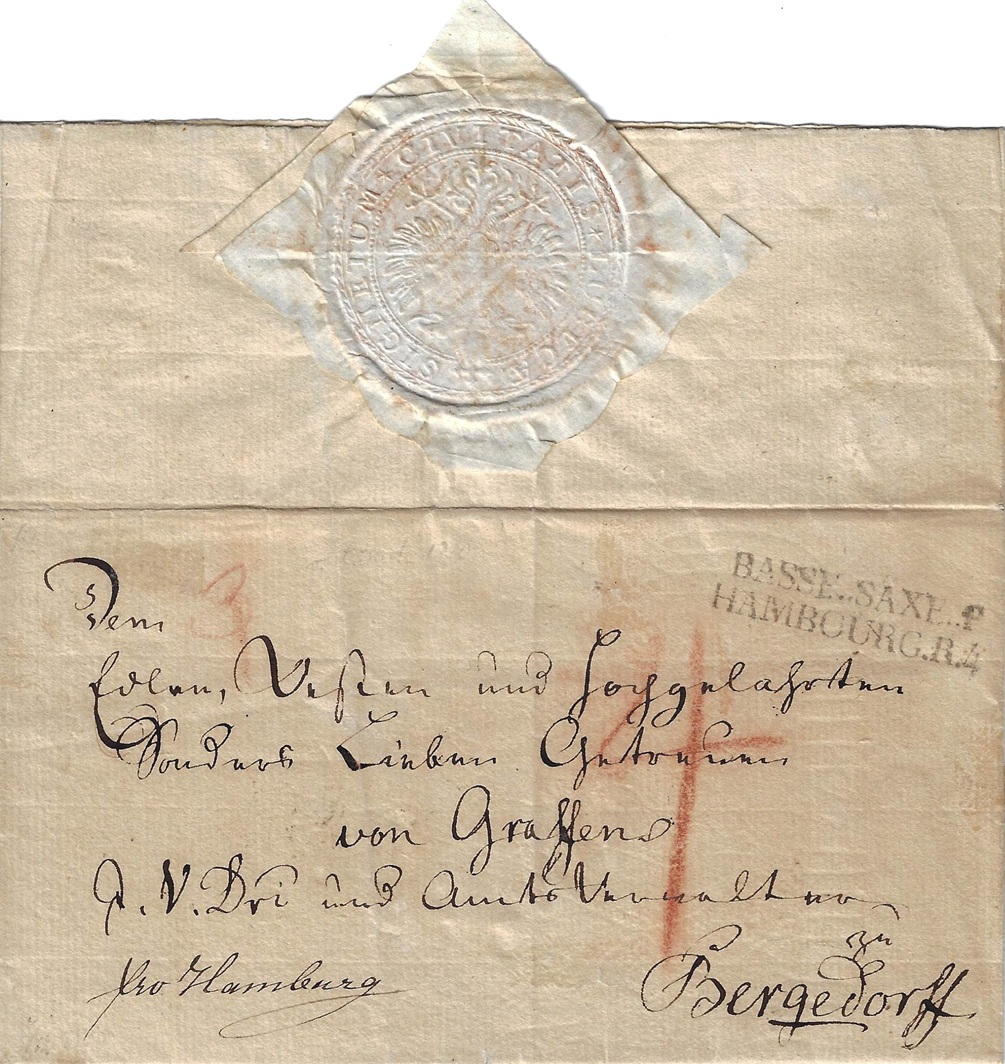 SIGILLUM ★ CIVITATIS ★ LUBECAE
BASSE..SAXE..f
HAMBOURG.R.4
Dem
Edlen, Vesten und Hochgelahrten
Sonders Lieben Getreuen
von Graffen
J. V. Dri und Amts Verwalter
zu
pro Hamburg
Bergedorff
4